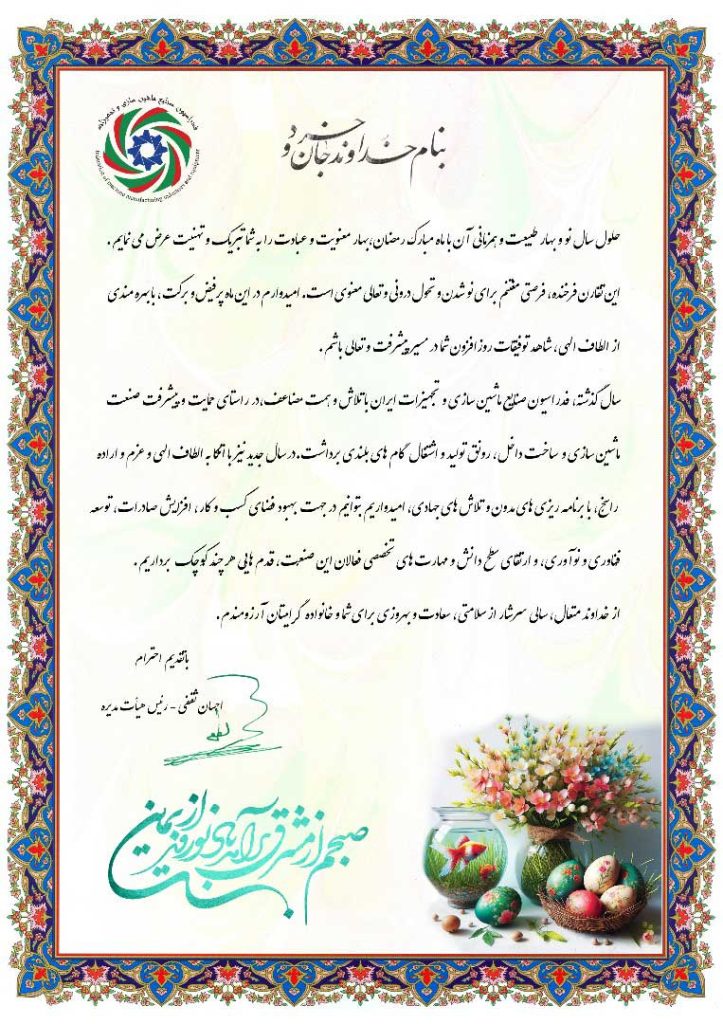 فدراسیون صنایع ماشین سازی و تجهیزات
Federation of machine manufacturing industries and equipment
بنام خداوند جان و خرد
حلول سال نو و بهار طبیعت و همزمانی آن با ماه مبارک رمضان،بهار معنویت و عبادت را به شما تبریک و تهنیت عرض می نمایم .
این تقارن فرخنده، فرصتی مغتنم برای نو شدن و تحول درونی و تعالی معنوی است. امیدوارم در این ماه پر فیض و برکت، با بهره مندی
از الطاف الهی، شاهد توفیقات روز افزون شما در مسیر پیشرفت و تعالی باشم .
سال گذشته، فدراسیون صنایع ماشین سازی و تجهیزات ایران با تلاش و همت مضاعف،در راستای حمایت و پیشرفت صنعت
ماشین سازی و ساخت داخل، رونق تولید و اشتغال گام های بلندی برداشت.در سال جدید نیز با اتکا به الطاف الهی و عزم و اراده
راسخ، با برنامه ریزی های مدون و تلاش های جهادی، امیدواریم بتوانیم در جهت بهبود فضای کسب و کار ، افزایش صادرات، توسعه
فناوری و نوآوری، و ارتقای سطح دانش و مهارت های تخصصی فعالان این صنعت، قدم هایی هر چند کوچک برداریم .
از خداوند متعال، سالی سرشار از سلامتی، سعادت و بهروزی برای شما و خانواده گرامیتان آرزومندم .
باتقدیم احترام
ثقفی - رئیس هیأت مدیره
صبحم از مشرق برآمد باد نوروز از یمین